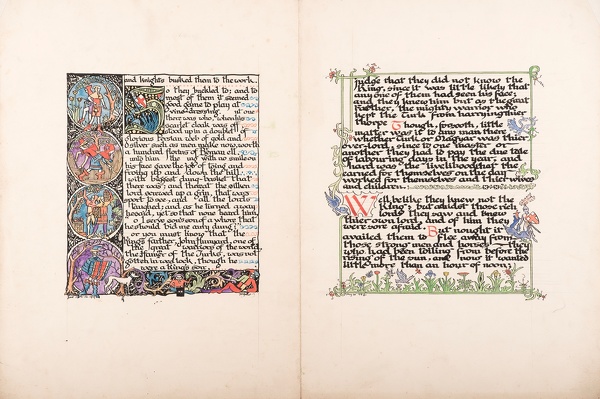 and knights busked them to the work.
So they buckled to; and to
most of them it seemed
good game to play at
vine-dressing.
there was who, when his
scarlet cloak was off
stood up in a doublet of
glorious Persian web of gold and
silver such as men make now, worth
a hundred florins of Bremen ell,
the king with no smile on
his face gave the job of toing and
froing up and down the hill
with the biggest dung-basket that
there was; and thereat the silken
lord screwed up a grin, that was
sport to see, and all the lords
laughed; and as he turned away
he said, yet so that none heard him,
do I serve son's son of a whore that
he should bid me carry dung?
For you must know that the
king's father, John Hunyad, one of
the great warriors of the world,
the Hunger of the Turks, was not
gotten in wedlock, though he
were a king's son.
judge that they did not know the
King, since it was little likely that
any one of them had seen his face;
and they knew him but as the great
Father, the mighty warrior who
kept the Turk from harrying their
thorpe. Though, forsooth, little
matter was it to any man there
whether Turk or Magyar was their
over-lord, since to one master or
another they had to pay the due tale
of labouring days in the year, and
hard was the livelihood that they
earned for themselves on the days
worked for themselves and their wives
and children.
Well, belike they knew not the
King; but amidst those rich
lords they saw and knew
their own lord, and of him they
were sore afraid. But nought it
availed them to flee away from
those strong men and horses - they
who had been toiling from before the
rising of the sun, and now it wanted
little more than an hour of noon: